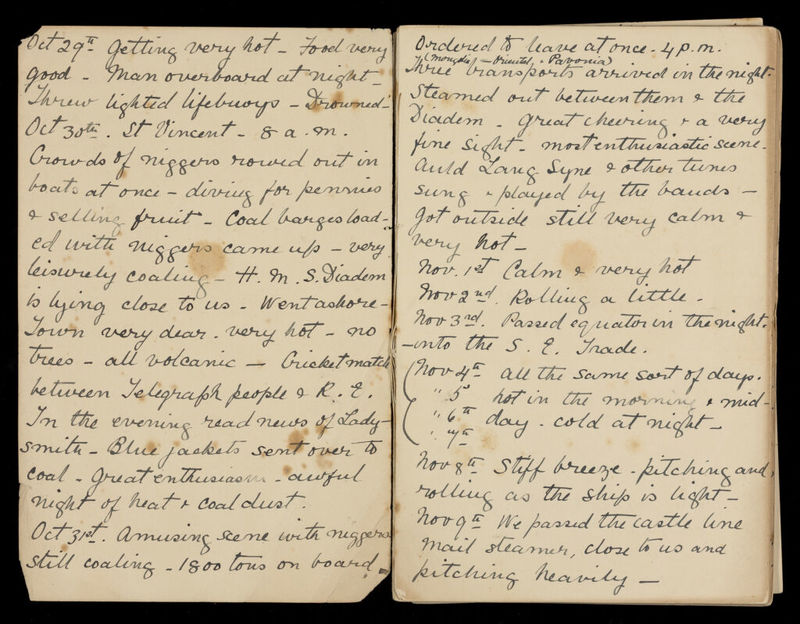 Oct 29th Getting very hot - Food very
good - Man overboard at night -
Threw lighted lifebuoys - Drowned -
Oct 30th. St Vincent - 8 a.m.
Crowds of niggers rowed out in
boats at once - diving for pennies
& selling fruit - Coal barges load-
ed with niggers came up - very
leisurely coaling - H.M.S. Diadem
is lying close to us - Went ashore -
Town very dear. very hot - no
trees - all volcanic - Cricket match
between Telegraph people & R.E.
In the evening read news of Lady-
smith - Blue jackets sent over to
coal - Great enthusiasm - awful
night of heat & coal dust.
Oct 31st. Amusing scene with niggers
still coaling - 1800 tons on board -
Ordered to leave at once - 4 p.m.
(Mongolia) - Oriental, & Pavonia)
Three transports arrived in the night.
Steamed out between them & the
Diadem - Great cheering & a very
fine sight - most enthusiastic scene.
Auld Lang Syne & other tunes
sung & played by the bands -
Got outside still very calm &
very hot -
Nov. 1st Calm & very hot
Nov 2nd. Rolling a little -
Nov 3rd. Passed equator in the night.
- into the S. E. Trade.
Nov 4th all the same sort of days.
" 5 hot in the morning & mid-
" 6th day - cold at night -
" 7th
Nov 8th Stiff breeze - pitching and
rolling as the ship is light -
Nov 9th We passed the castle line
mail steamer, close to us and
pitching heavily -